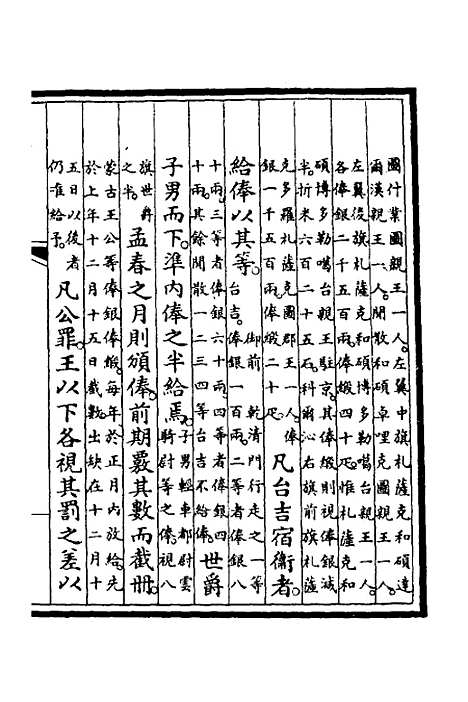 圖什業圖親王一人。左翼中旗札薩克和碩達
爾漢親王一人。閒散和碩卓哩克圖親王一人。
左翼後旗札薩克和碩博多勒噶台親王一人。
各俸銀二千五百兩。俸緞四十疋。惟札薩克和
碩博多勒噶台親王駐京。其俸緞則視俸銀減
半。折米六百二十五石。科爾沁右旗前旗札薩
克多羅札薩克圖郡王一人。俸
銀一千五百兩。俸緞二十疋。
凡台吉宿衞者。
給俸以其等。
御前 乾清門行走之一等
台吉。俸銀一百兩。二等者俸銀八
十兩。三等者俸銀六十兩。四等者俸銀四
十兩。其餘閒散一二三四等台吉不給俸。
世爵
子男而下。準内俸之半給焉。
子男輕車都尉雲
騎尉等之俸。視八
旗世爵
之半。
孟春之月則頒俸。前期覈其數而截册。
蒙古王公等俸銀俸緞。每年於正月内放給。先
於上年十二月十五日截數。出缺在十二月十
五日以後者
仍准給予。
凡公罪。王以下各視其罰之差以